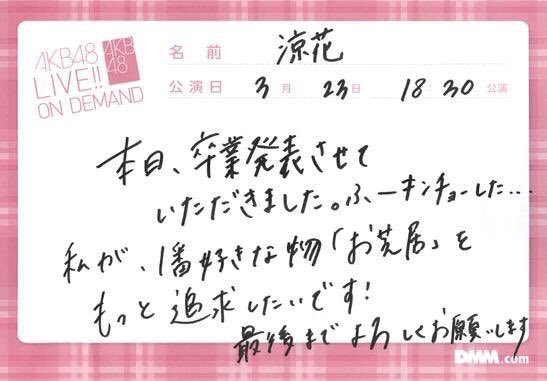 AKB48
LIVE!!
ON DEMAND
AKB
48
名前 涼花
公演日 3月23日 18:30公演
本日、卒業発表させて
いただきました。ふーキンチョーした…
私が、1番好きな物「お芝居」を
もっと追求したいです!
最後までよろしくお願いします
DMM.com